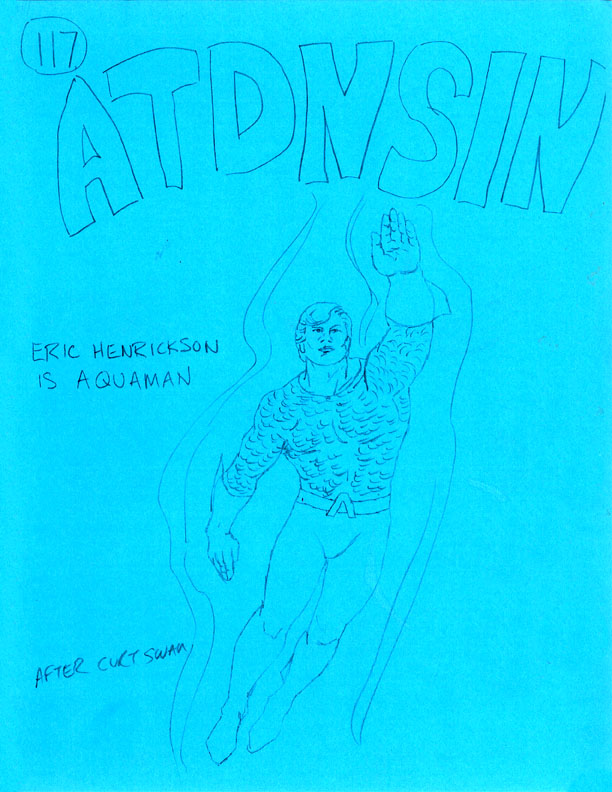 117
ATDNSIN
ERIC HENRICKSON
IS AQUAMAN
A
AFTER CURT SWAN